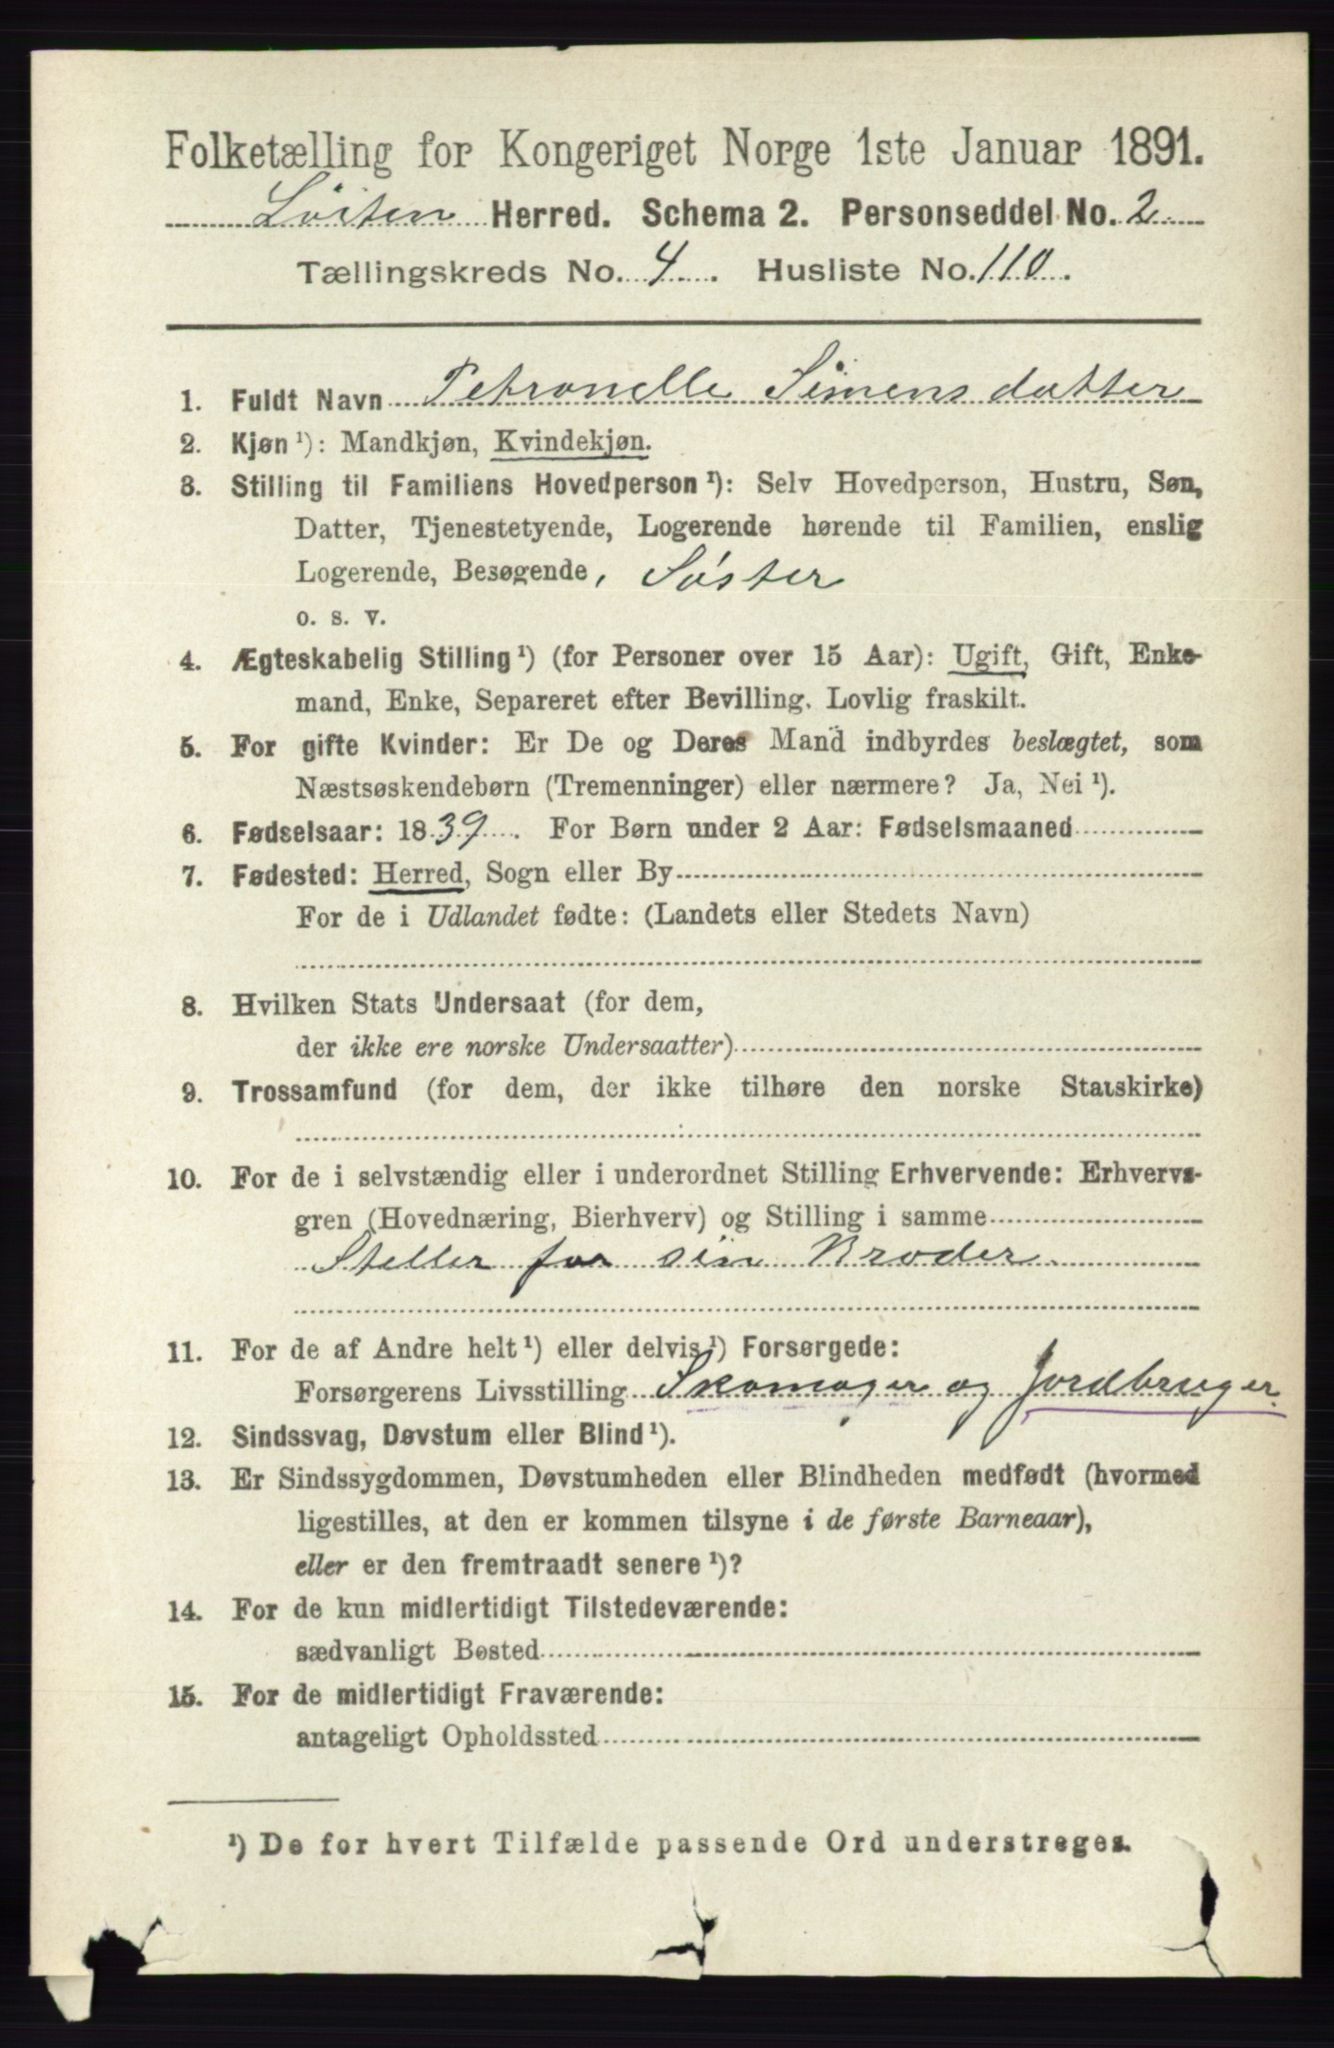 Folketælling for Kongeriget Norge 1ste Januar 1891.
Løiten Herred. Schema 2. Personseddel No. 2
Tællingskreds No. 4. Husliste No. 110.
1. Fuldt Navn Petronelle Simensdatter
2. Kjøn ¹): Mandkjøn, Kvindekjøn.
3. Stilling til Familiens Hovedperson ¹): Selv Hovedperson, Hustru, Søn,
Datter, Tjenestetyende, Logerende hørende til Familien, enslig
Logerende, Besøgende, Søster
o. s. v.
4. Ægteskabelig Stilling ¹) (for Personer over 15 Aar): Ugift, Gift, Enke-
mand, Enke, Separeret efter Bevilling. Lovlig fraskilt.
5. For gifte Kvinder: Er De og Deres Mand indbyrdes beslægtet, som
Næstsøskendebørn (Tremenninger) eller nærmere? Ja, Nei ¹).
6. Fødselsaar: 1839. For Børn under 2 Aar: Fødselsmaaned
7. Fødested: Herred, Sogn eller By
For de i Udlandet fødte: (Landets eller Stedets Navn)
8. Hvilken Stats Undersaat (for dem,
der ikke ere norske Undersaatter)
9. Trossamfund (for dem, der ikke tilhøre den norske Statskirke)
10. For de i selvstændig eller i underordnet Stilling Erhvervende: Erhvervs-
gren (Hovednæring, Bierhverv) og Stilling i samme
Steller for sin Broder
11. For de af Andre helt ¹) eller delvis ¹) Forsørgede:
Forsørgerens Livsstilling Skomager og Jordbruger
12. Sindssvag, Døvstum eller Blind ¹).
13. Er Sindssygdommen, Døvstumheden eller Blindheden medfødt (hvormed
ligestilles, at den er kommen tilsyne i de første Barneaar),
eller er den fremtraadt senere ¹)?
14. For de kun midlertidigt Tilstedeværende:
sædvanligt Bosted
15. For de midlertidigt Fraværende:
antageligt Opholdssted
¹) De for hvert Tilfælde passende Ord understreges.